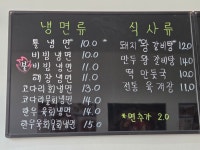 냉면류
통냉면 10.0
비빔냉면 10.0
물비빔냉면 11.0
해장냉면 11.0
코다리냉면 13.0
코다리물회냉면 14.0
한우육회냉면 14.0
한우육회물냉면 15.0
식사류
돼지왕갈비탕 12.0
만두왕갈비탕 14.0
떡만둣국 10.0
전통육개장 11.0
*면추가 2.0